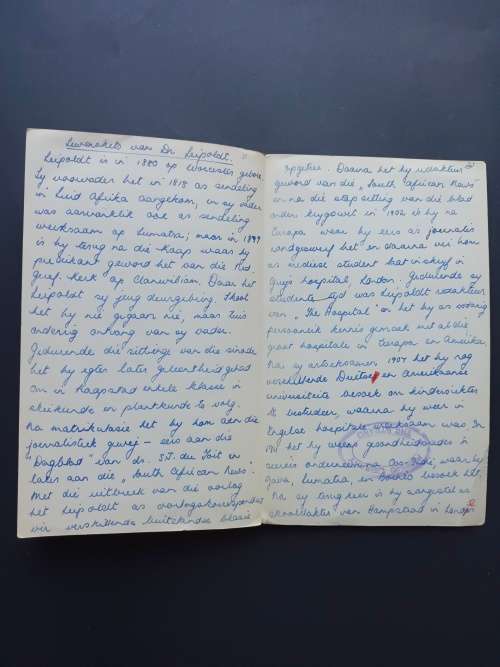 Lewensskets van Dr. Leipoldt.
Leipoldt is in 1880 op Worcester gebore.
Sy voorvader het in 1818 as sendeling
in Suid Afrika aangekom, en sy vader
was aanvanklik ook as sendeling
werksaam op Sumatra; maar in
is hy terug na die Kaap waar hy
predikant geword het van die Ned.
Geref. Kerk op Clanwilliam. Daar het
Leipoldt sy jeug deurgebring. Skool
het hy nie gegaan nie, maar tuis
onderrig ontvang van sy vader.
Gedurende die sittings van die sinode
het hy egter later geleentheid gehad
om in Kaapstad enkele klasse in
skeikunde en plantkunde te volg.
Na matrikulasie het hy hom aan die
joernalistiek gewy – eers aan die
"Dagblad" van ds. S.J. du Toit en
later aan die „South African News".
Met die uitbreek van die oorlog
het Leipoldt as oorlogskorrespondent
vir verskillende buitelandse blaaie
opgetree. Daarna het hy redakteur
geword van die „South African News"
en na die stopsetting van die blad
onder krygswet in 1902 is hy na
Europa waar hy eers as joernalis
rondgeswerf het en daarna vir hom
as mediese student laat inskryf in
Guy's hospital, London. Gedurende sy
studente tyd was Leipoldt redakteur
van „The Hospital" en het hy as sodanig
persoonlik kennis gemaak met al die
groot hospitale in Europa en Amerika.
Na sy 1907 het hy nog
verskillende Duitse en Amerikaanse
universiteite besoek om kindersiektes
te bestudeer, waarna hy weer in
Engelse hospitale werksaam was. In
het hy weens gesondheidsredes 'n
seereis onderneem na Oos-Indië, waar hy
Java, Sumatra, en Borneo besoek het.
Na sy terugkeer is hy aangestel as
skooldokter van Hampstead in Londen